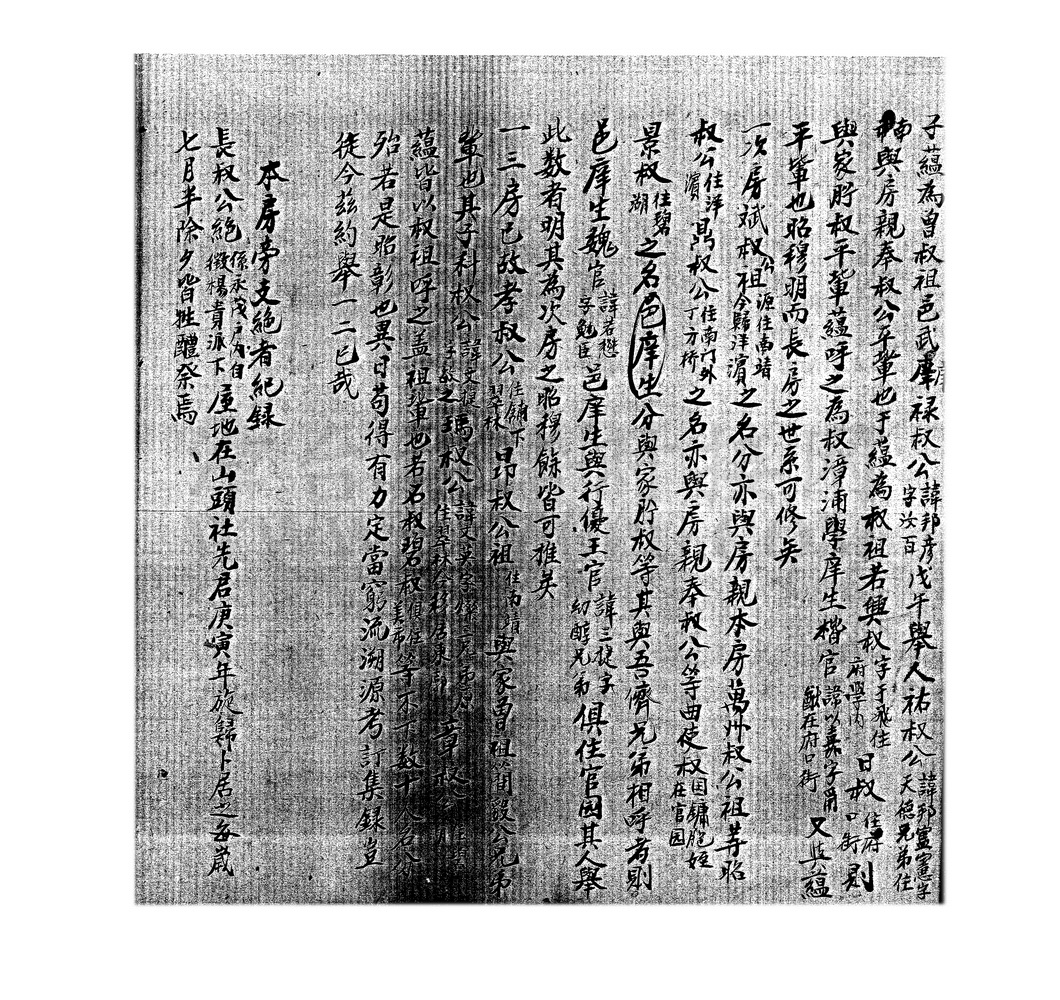 子蘊為曾叔祖邑武庠祿叔公諱邦彥字汝百戊午舉人祐叔公諱邦靈憲字天德兄弟住
南與房親奉叔公平輩也于蘊為叔祖若興叔字于飛住府學內日叔住府口街則
與家所叔平輩蘊呼之為叔漳浦學庠生楷官諱以嘉字爵猷在府口街又與蘊
平輩也昭穆明而長房之世系可修矣
一次房斌叔祖源住南靖今歸洋濱之名分亦與房親本房萬州叔公祖等昭
叔公住洋濱禼叔公住南門外丁方橋之名亦與房親奉叔公等曲使叔因鏞胞姪在官园
景叔住碧湖之名邑庠生分與家所叔等其與吾儕兄弟相呼者則
邑庠生魏官諱若懋字勉臣邑庠生與行優王官諱三捷字幼醇兄弟俱住官园其人舉
此数者明其為次房之昭穆餘皆可推矣
一三房已故孝叔公住舖下翠林日昂叔公祖住南靖與家曾祖簡毅公兄弟
輩也其子科叔公諱文捷瑪叔公諱文英
蘊皆以叔祖呼之孟祖輩也若石叔碧叔俱住美市等不下数十人名分
殆若是昭彰也異日苟得有力定當窮流溯源考訂集録豈
徒今兹約舉一二已哉
本房旁支絕者紀録
長叔公絕係永茂戶內自徽楊責派下厝地在山頭社先君庚寅年旋歸卜居之每歲
七月半除夕皆牲醴祭焉